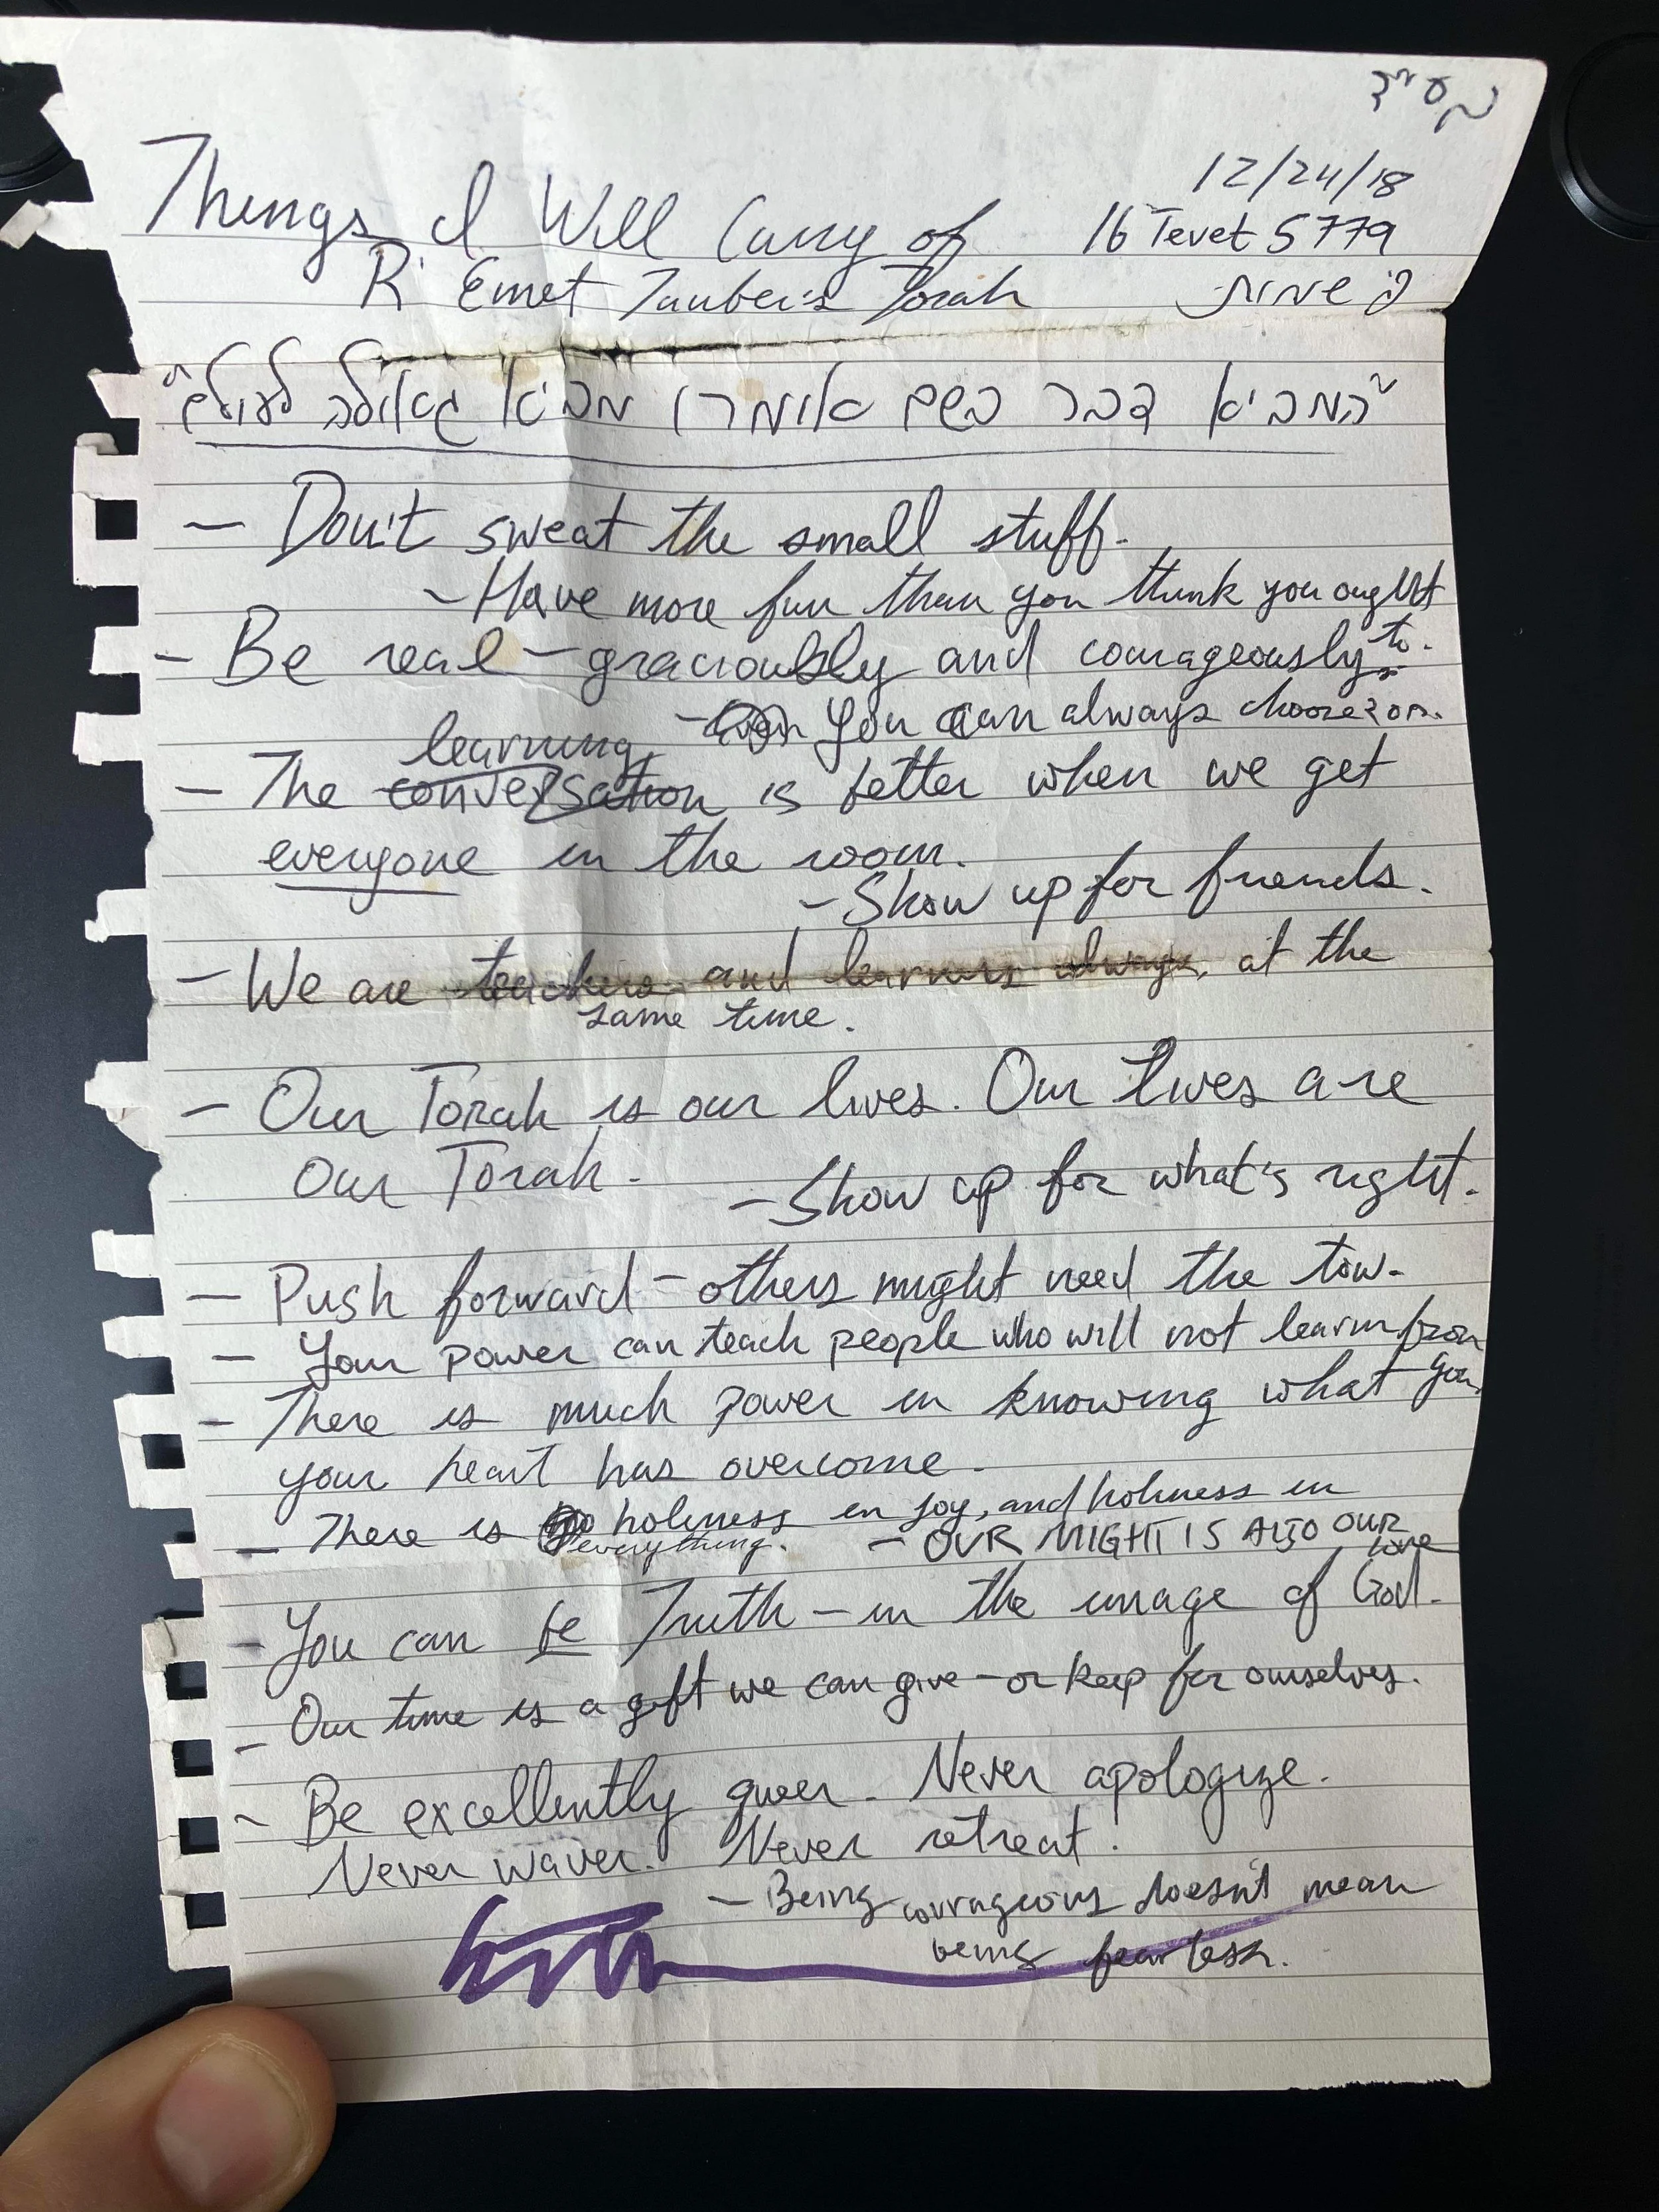 בס״ד
12/24/18
Things I Will Carry of
16 Tevet 5779
R' Emet Tauber's Torah
פ' שמות
"המביא דבר בשם אומרו מביא גאולה לעולם"
- Don't sweat the small stuff.
- Have more fun than you think you ought to.
- Be real - graciously and courageously.
- You can always choose
learning
- The conversation is better when we get
everyone in the room.
- Show up for friends.
- We are teachers and learners always, at the
same time.
- Our Torah is our lives. Our lives are
our Torah.
- Show up for what's right.
- Push forward - others might need the tow.
- Your power can teach people who will not learn from you.
- There is much power in knowing what
your heart has overcome.
- There is holiness in joy, and holiness in
everything.
- OUR MIGHT IS ALSO OUR
love
- You can be Truth - in the image of God.
- Our time is a gift we can give - or keep for ourselves.
- Be excellently queer. Never apologize.
Never waver. Never retreat.
- Being courageous doesn't mean
being fearless.